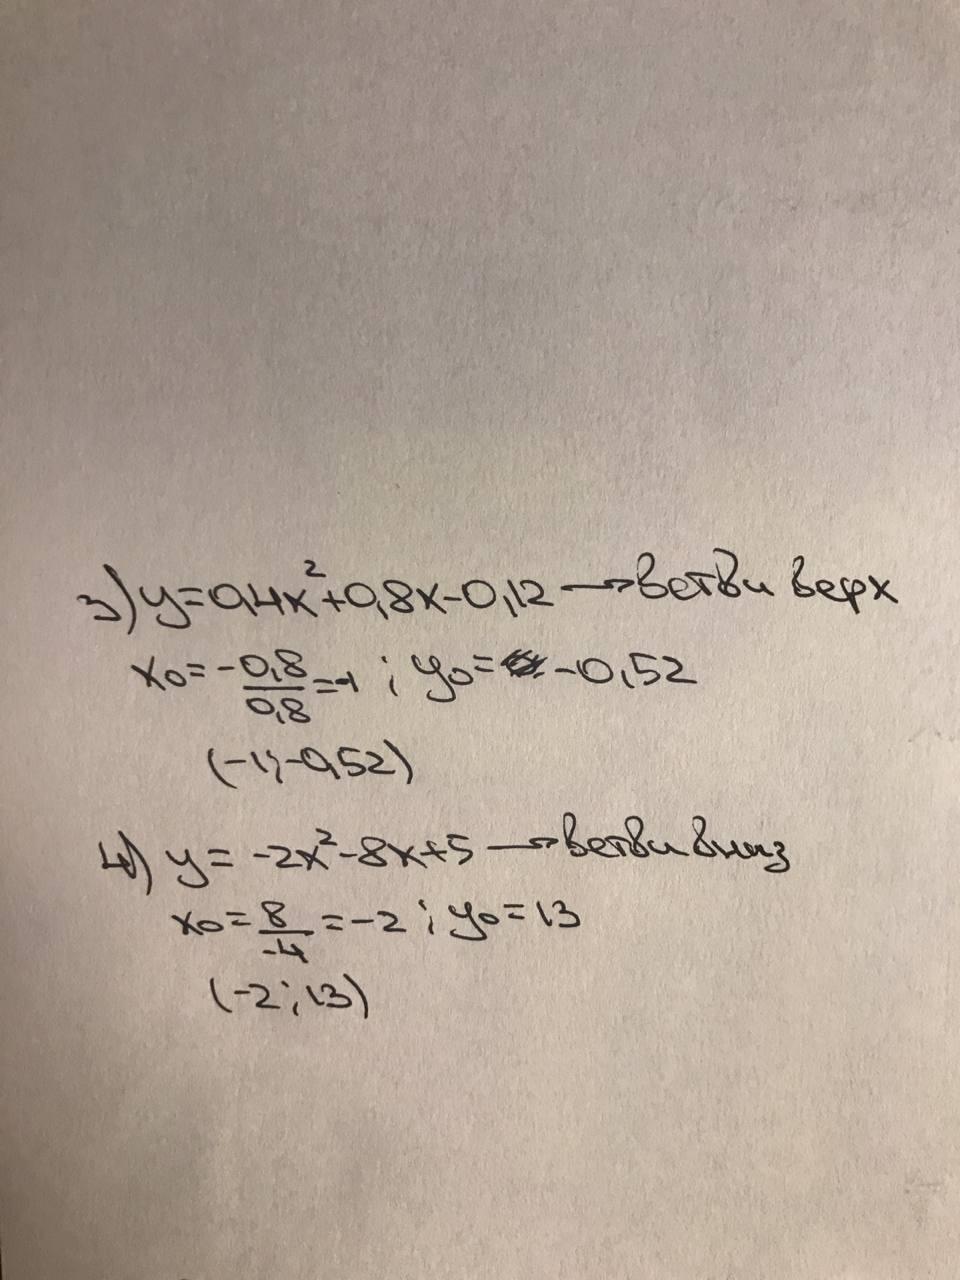 3) y=0,4x²+0,8x-0,12 → ветви верх
x0=-0,8/0,8=-1 ; y0= -0,52
(-1;-0,52)
4) y= -2x²-8x+5 → ветви вниз
x0=8/-4=-2 ; y0=13
(-2;13)